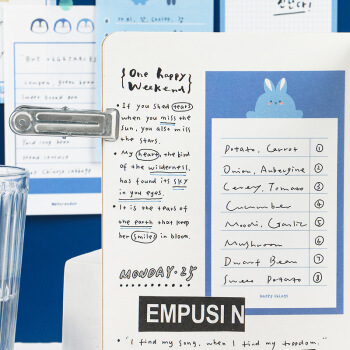 BUY VEGETABLES
{One happy
Weekend}
• If you shed tears
when you miss the
sun, you also miss
the stars.
• My heart, the bird
of the wilderness,
has found its sky
in you eyes.
• It is the tears of
the earth that keep
her smile in bloom.
MONDAY·25
EMPUSI N
• "I find my song, when I find my freedom."
Potato, Carrot ①
Onion, Aubergine ②
Celery, Tomato ③
Cucumber ④
Mooli, Garlic ⑤
Mushroom ⑥
Dwarf Bean ⑦
Sweet Potato ⑧
happy things